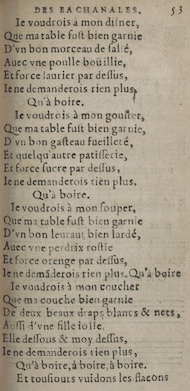 DES BACHANALES. 53
Ie voudrois à mon disner,
Que ma table fust bien garnie
D'vn bon morceau de sallé,
Auec vne poulle boüillie,
Et force laurier par dessus,
Ie ne demanderois rien plus,
Qu'à boire.
Ie voudrois à mon gouster,
Que ma table fust bien garnie
D'vn bon gasteau fueilleté,
Et quelqu'autre patisserie,
Et force sucre par dessus,
Ie ne demanderois rien plus.
Qu'à boire.
Ie voudrois à mon souper,
Que ma table fust bien garnie
D'vn bon leuraut bien lardé,
Auec vne perdrix rostie
Et force orenge par dessus,
Ie ne demãderois rien plus. Qu'à boire
Ie voudrois à mon coucher
Que ma couche bien garnie
De deux beaux draps blancs & nets,
Aussi d'vne fille iolie,
Elle dessous & moy dessus,
Ie ne demanderois rien plus,
Qu'à boire, à boire, à boire.
Et tousiours vuidons les flacons